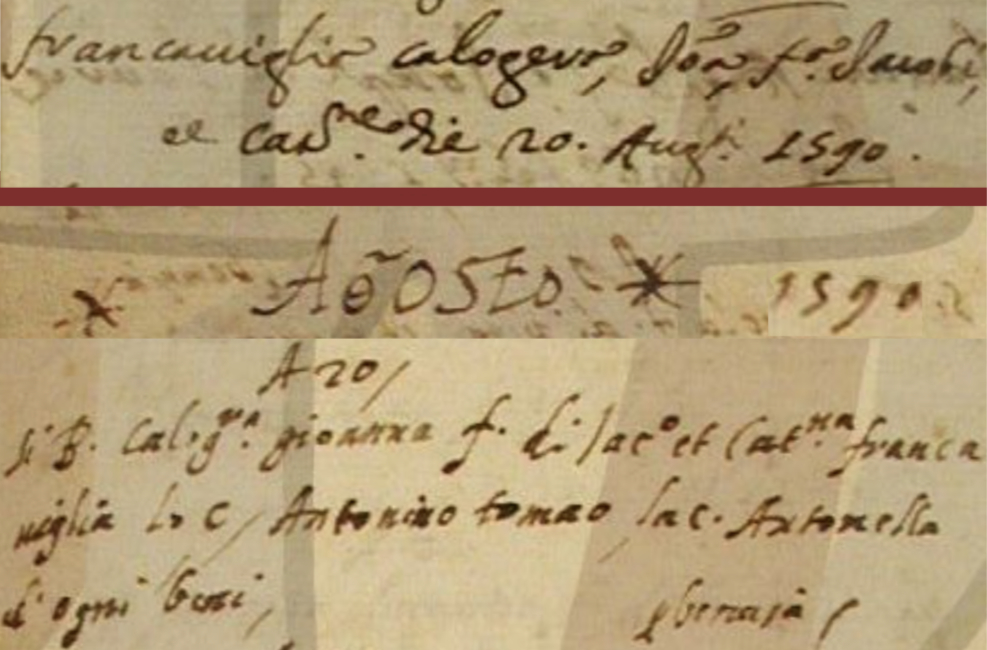 francaviglia calogera, Joã, f.ª Jacobi,
et Cat.ne die 20. Aug.ti 1590.
AGÕSTO. 1590
A 20/
si B. Calog.ra gioanna f. di Jac.o et Cat.na franca
viglia lo C, Antonino tomao la c. Antonella
d'ogni beni,